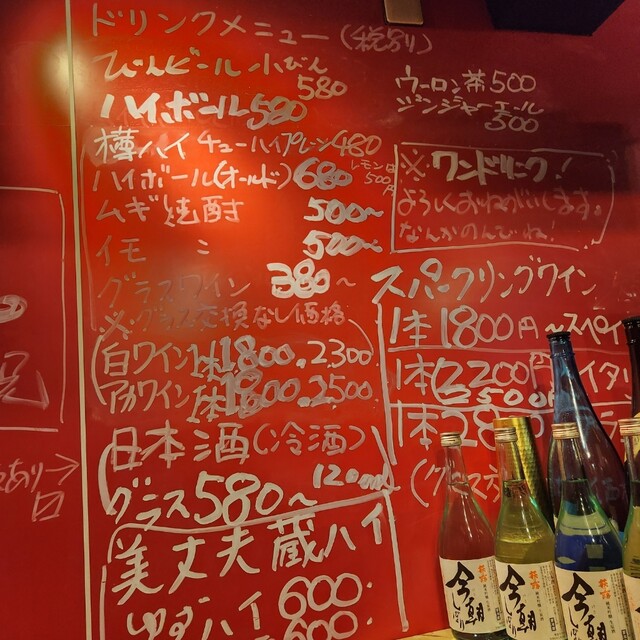 ドリンクメニュー(税別)
びんビール小びん
580
ハイボール580
樽ハイ チューハイプレーン480
レモンは
500円
ハイボール(オールド)680
ムギ焼酎 500〜
イモ 〃 500〜
グラスワイン 380〜
※グラス交換なし価格
白ワイン1本1800,2300
アカワイン1本1800,2500
日本酒(冷酒)
120ml
グラス580〜
美丈夫蔵ハイ
600
ゆずハイ600
ウーロン茶500
ジンジャーエール
500
※ワンドリンク!
よろしくおねがいします。
なんかのんでね!
スパークリングワイン
1本1800円〜スペイ
1本2200円イタリ
2500円
1本28
(グラス
あり→
口
今朝
しぼり
萩の露
今朝
しぼり
萩の露
今朝
しぼり